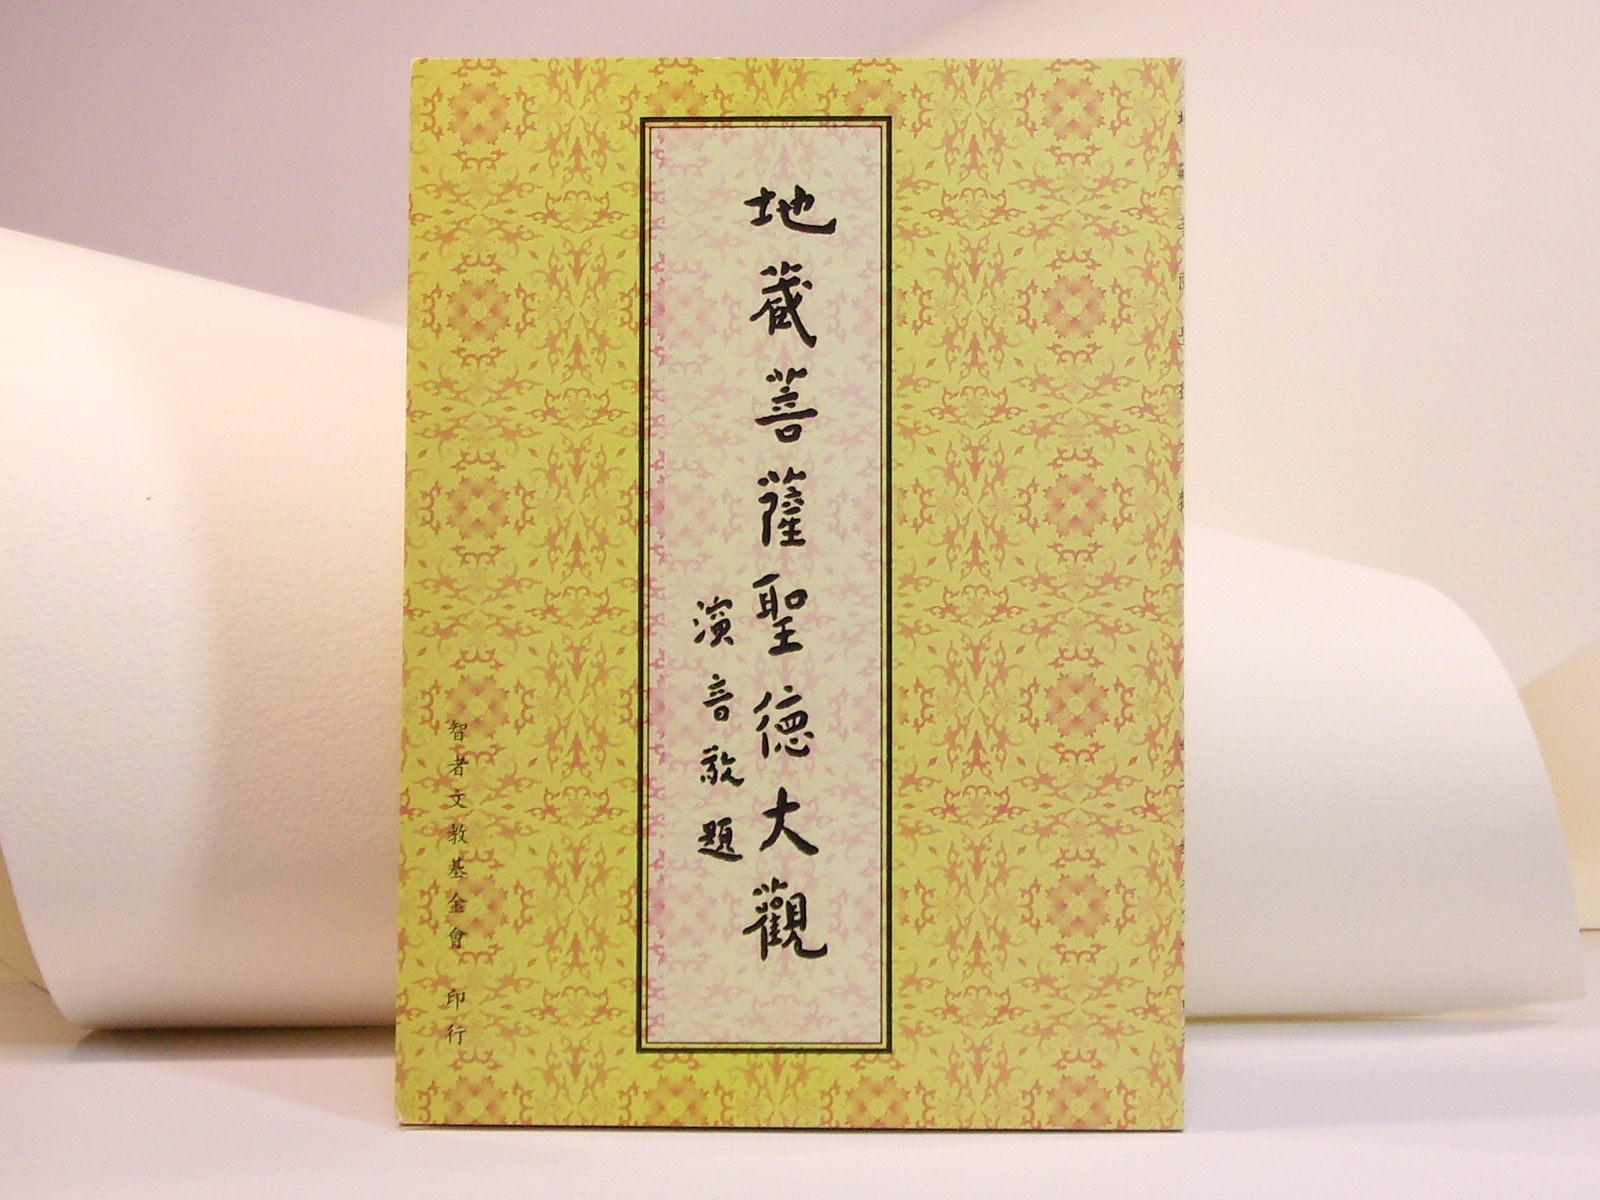 地藏菩薩聖德大觀
演音敬題
智者文教基金會 印行